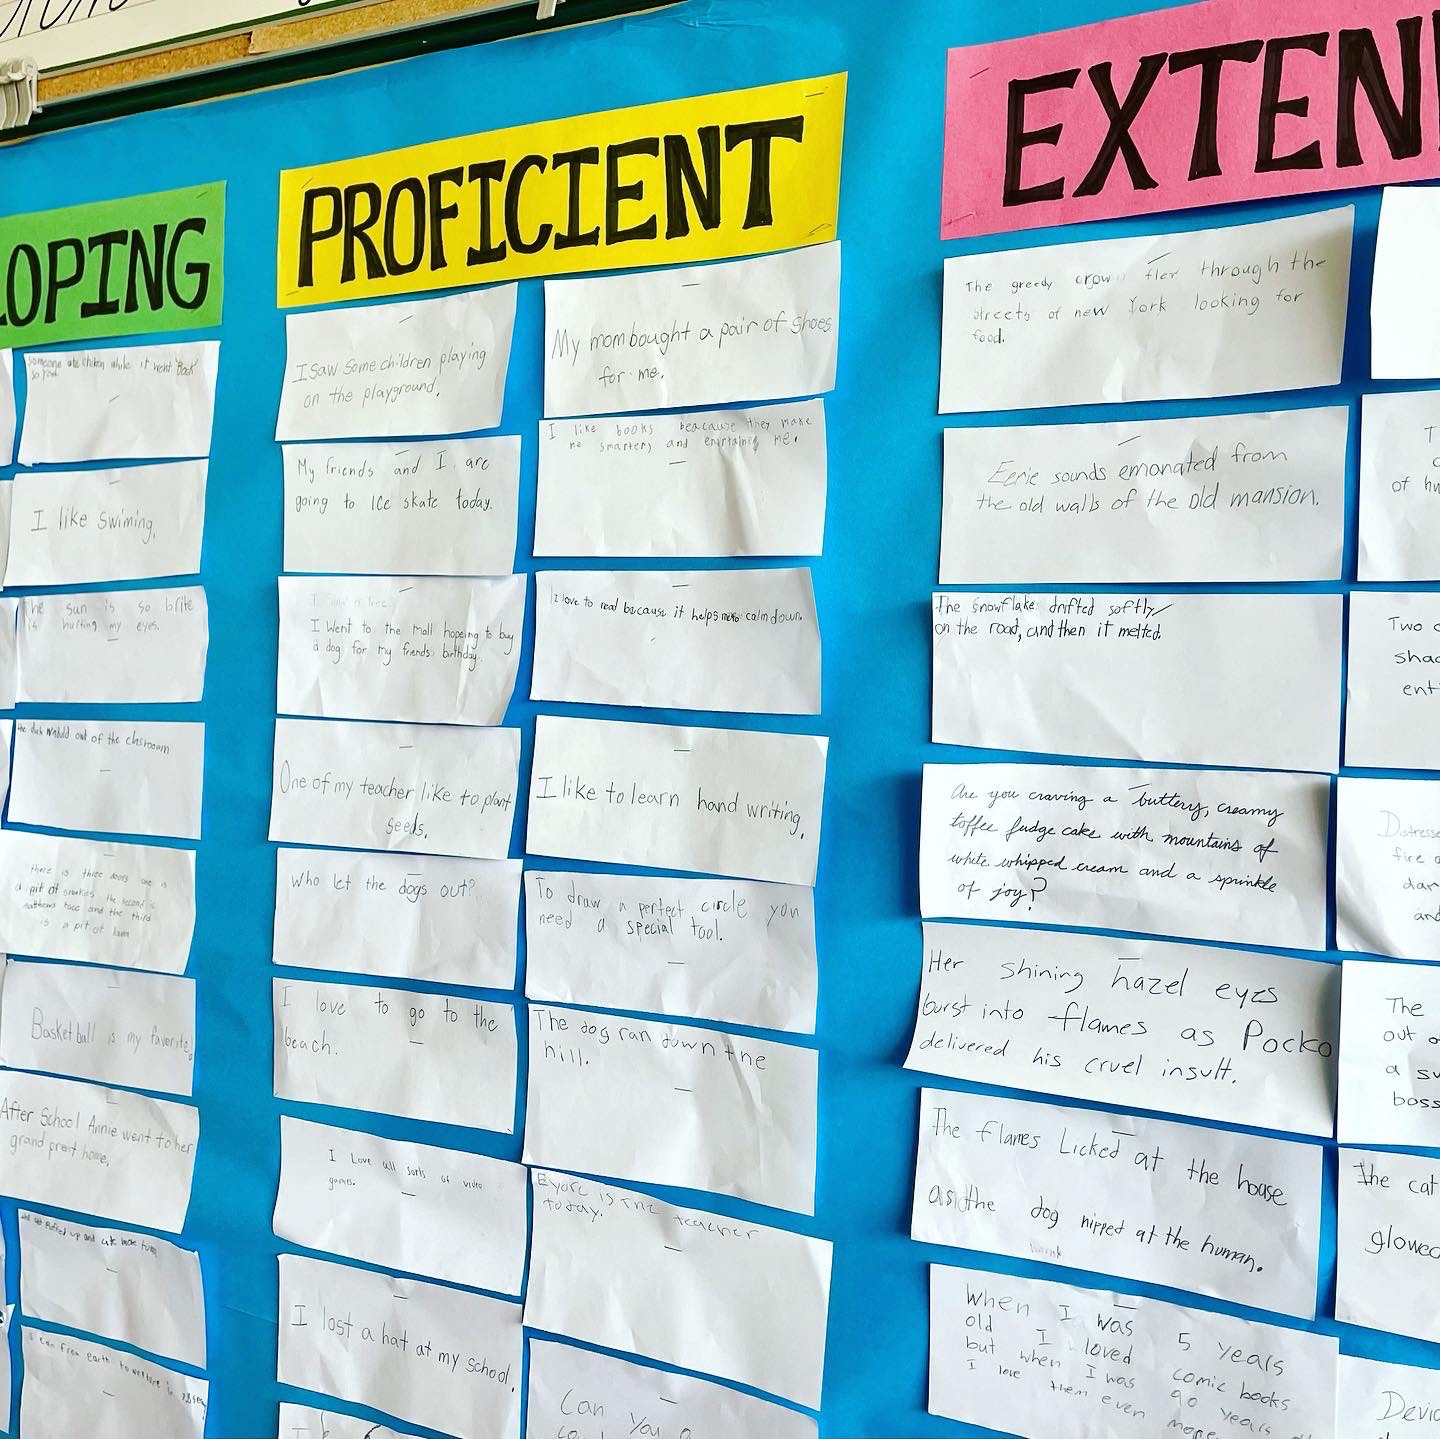 OPING
someone ate chicken while it went "Back"
so you
I like swiming.
The sun is so brite
is hurting my eyes.
the duck out of the clasrooom
there is three doors one is
a pit of snakes the second is
face and the third
is a pit of
Basket ball is my favorite.
After School Annie went to her
grand prent home.
up and ate more
PROFICIENT
I saw some children playing
on the playground.
My friends and I are
going to Ice skate today.
I Went to the Mall hopeing to buy
a dog for my friends birthday.
One of my teacher like to plant
seeds.
Who let the dogs out?
I love to go to the
beach.
I Love all sorts of video
games.
I lost a hat at my school.
My mom bought a pair of shoes
for me.
I like books beacause they make
me smarter, and me.
I love to read because it helps me calm down.
I like to learn hand writing.
To draw a perfect circle you
need a special tool.
The dog ran down the
hill.
is the teacher
today.
Can you a
EXTEN
The greedy crow through the
streets of new York looking for
food.
Eerie sounds emanated from
the old walls of the old mansion.
The snowflake drifted softly
on the road, and then it melted.
Are you craving a buttery, creamy
toffee fudge cake with mountains of
white whipped cream and a sprinkle
of joy?
Her shining hazel eyes
burst into flames as Pocko
delivered his cruel insult.
The flames Licked at the house
as the dog nipped at the human.
When I was 5 years
old I loved comic books
but when I was 90 years
I love them even more.
of hu
Two c
shad
enti
Distresse
fire
dar
and
The
out o
a su
boss
The cat
glowed
Devic